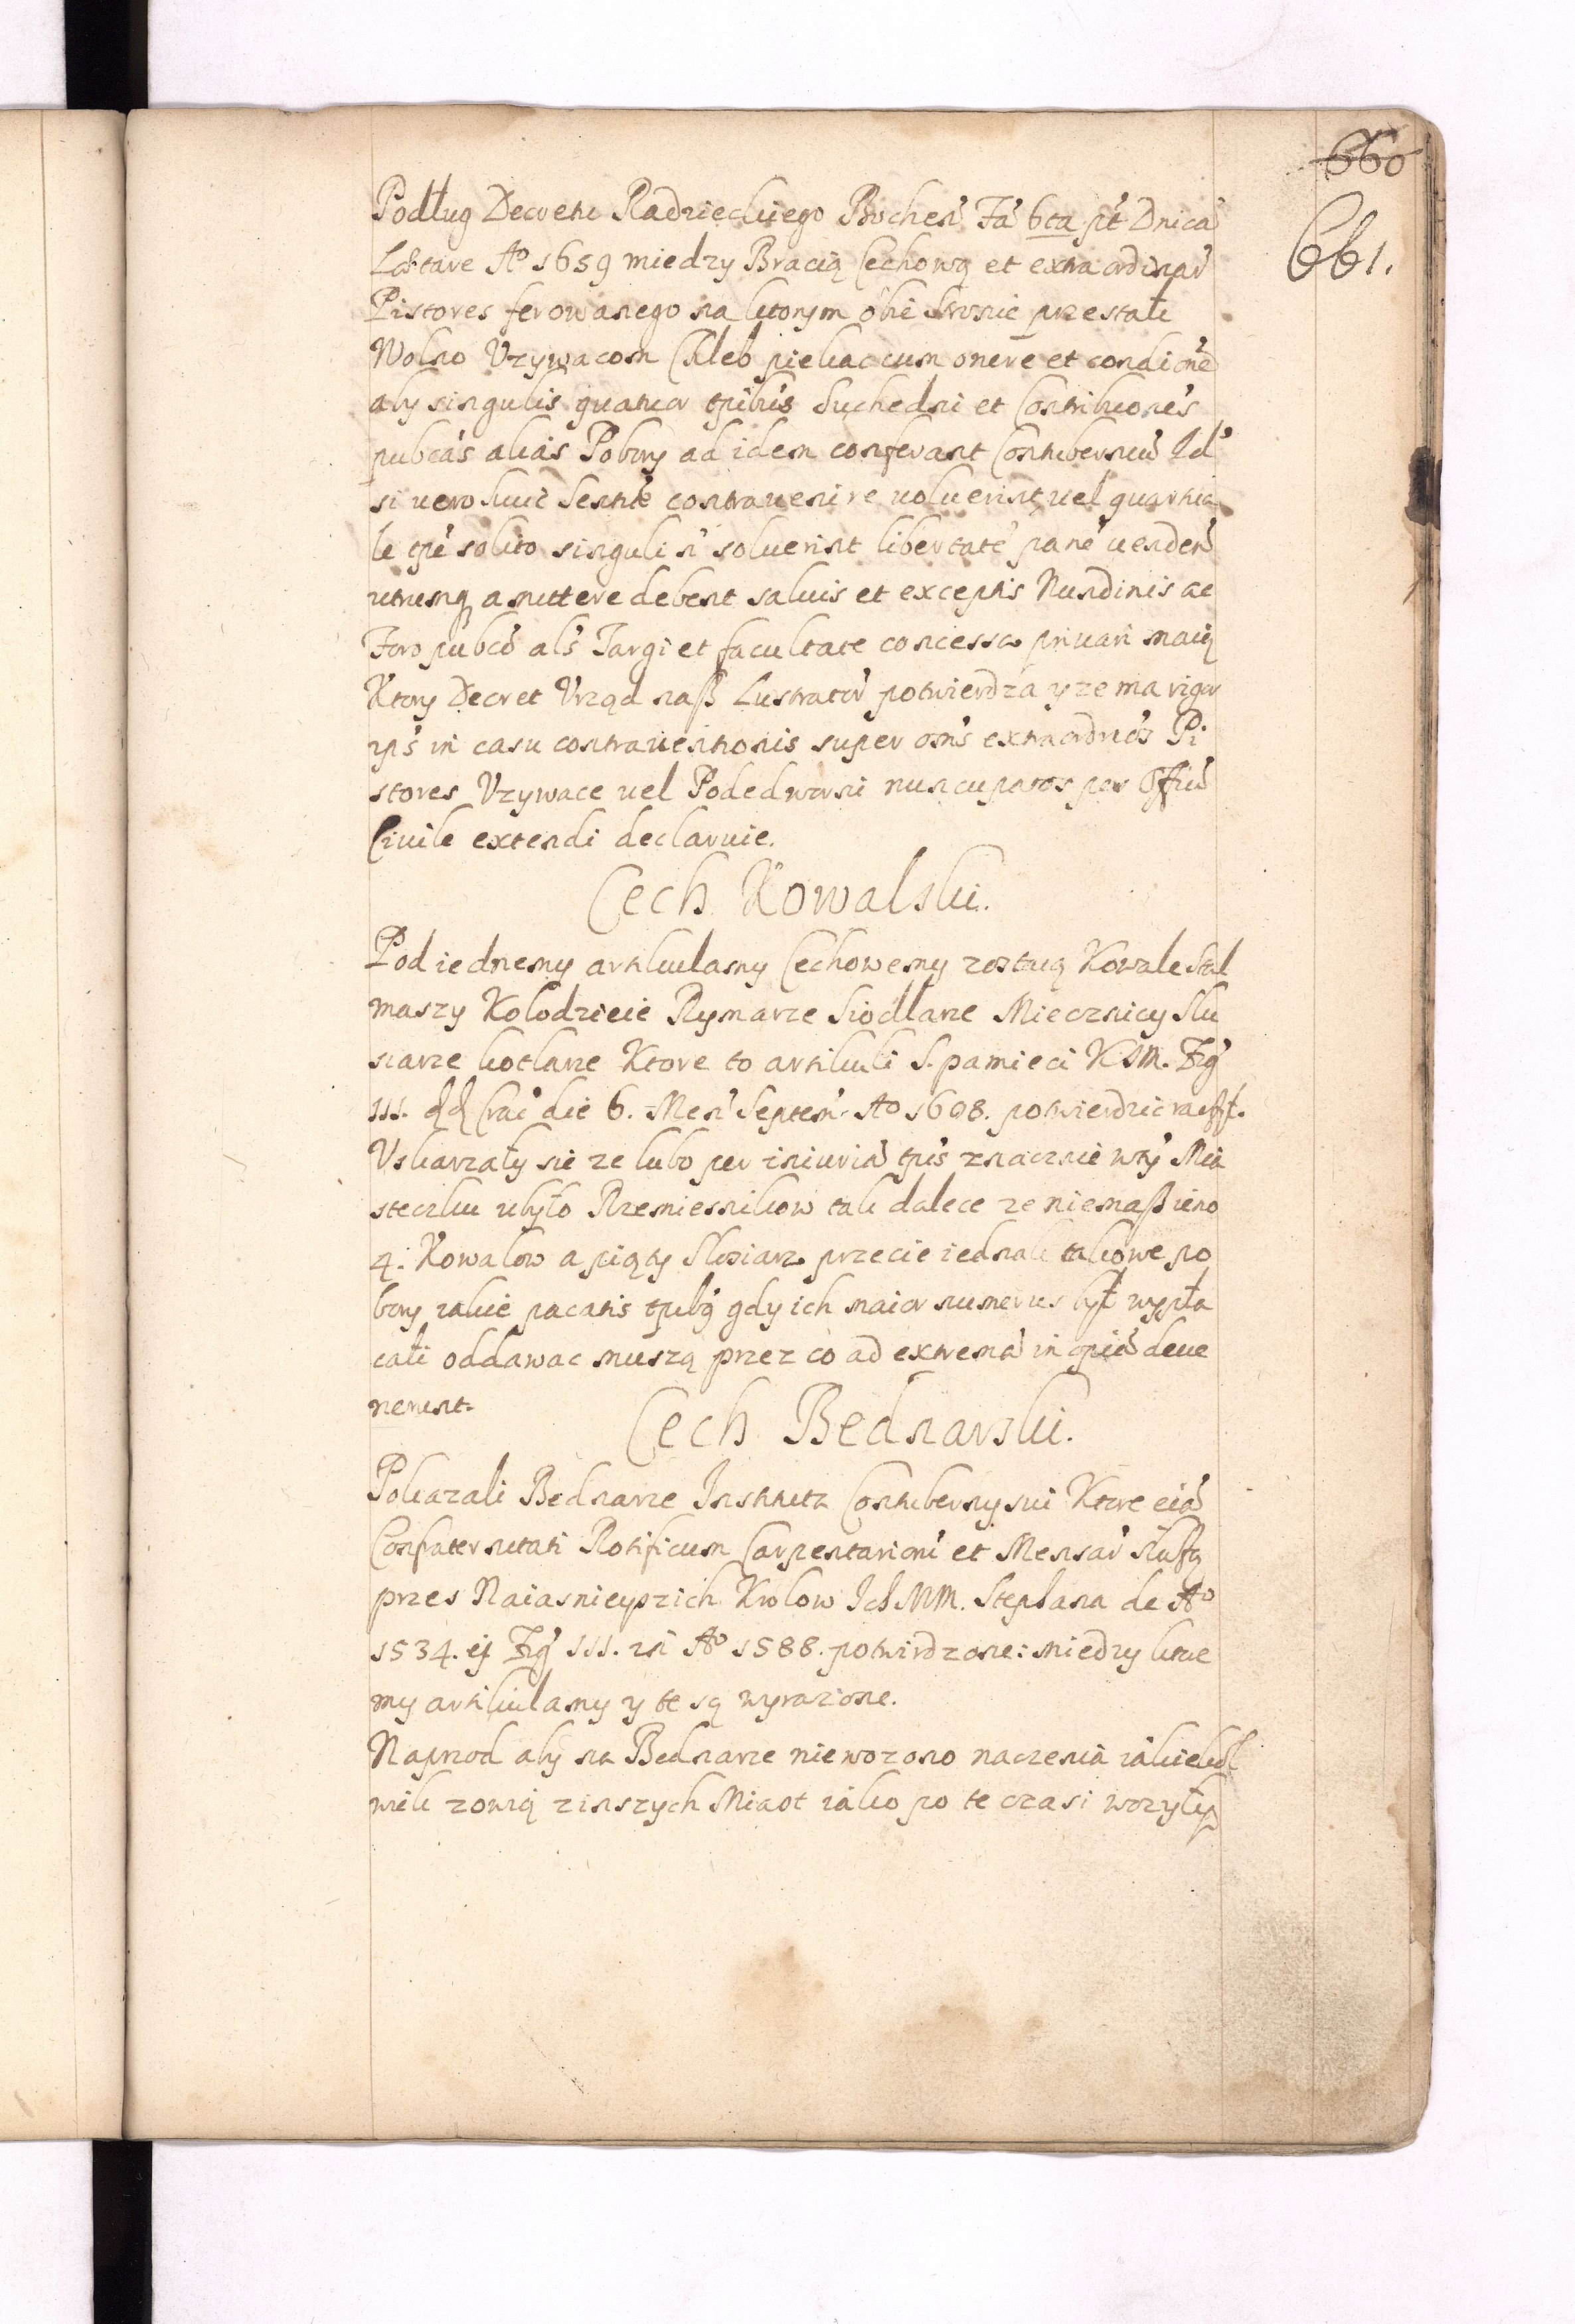 660
661.
Podług Decretu Radzieckiego Bochen̄ Fā 6ta pt Dnicā
Lætare Ao 1659 miedzy Bracią Cechową et extraordinar̄
Pistores ferowanego na ktorym obie stronie przestały
Wolno Vzywacom Chleb piekac cum onere et condiōne
aby singulis quatuor tpibus Suchedni et Contribuōnes
pubcas alias Pobory ad idem conferant Contuberniū Id
si vero huic Sentiæ contravenire voluerint, vel quartua
le tpe solito singuli n̄ solverint libertatē panē vendend̄
utrumq amittere debent salvis et exceptis Nundinis ac
Foro pubco als Targi et facultate concessa privari maią
Ktory Decret Vrząd nasz Lustrator̄ potwierdza y ze ma rigor
ips in casu contraventionis super oms extraordrios Pi
stores Vzywace vel Podedworni nuncupatos per Offiū
Civile extendi declaruie.
Cech Kowalski.
Pod iednemy artikulamy Cechowemy zostaią Kowale Stal
maszy Kolodzieie Rymarze Siodlarze Miecznicy Slu
siarze kotlarze Ktore to artikuli S. pamieci KJM. Zyg
III. dd Crac die 6. Men Septem Ao 1608. potwierdzic raczył.
Vskarzały sie ze lubo per iniuriā tpis znacznie wty Mia
steczku ubyło Rzemiesnikow tak dalece ze niemasz ieno
4. Kowalow a piąty Slosiarz przecie iednak takowe po
bory iakie pacatis tpibq gdy ich maior numerus był wypła
cali oddawac muszą przez co ad extremā inopiā deve
nerunt.
Cech Bednarski.
Pokazali Bednarze Instituta Contubernij sui Ktore eiā
Confraternitati Rotificum Carpentarioru et Mensar̄ słuszą
przes Naiasnieyszich Krolow Ich MM. Stephana de Ao
1534. et Zyg III. in Ao 1588. potwirdzone: miedzy ktore
my artikulamy y te są wyrazione.
Naprzod aby na Bednarze niewozono naczenia iakiekol
wiek zowią zinszych Miast iako po te czasi wozyly